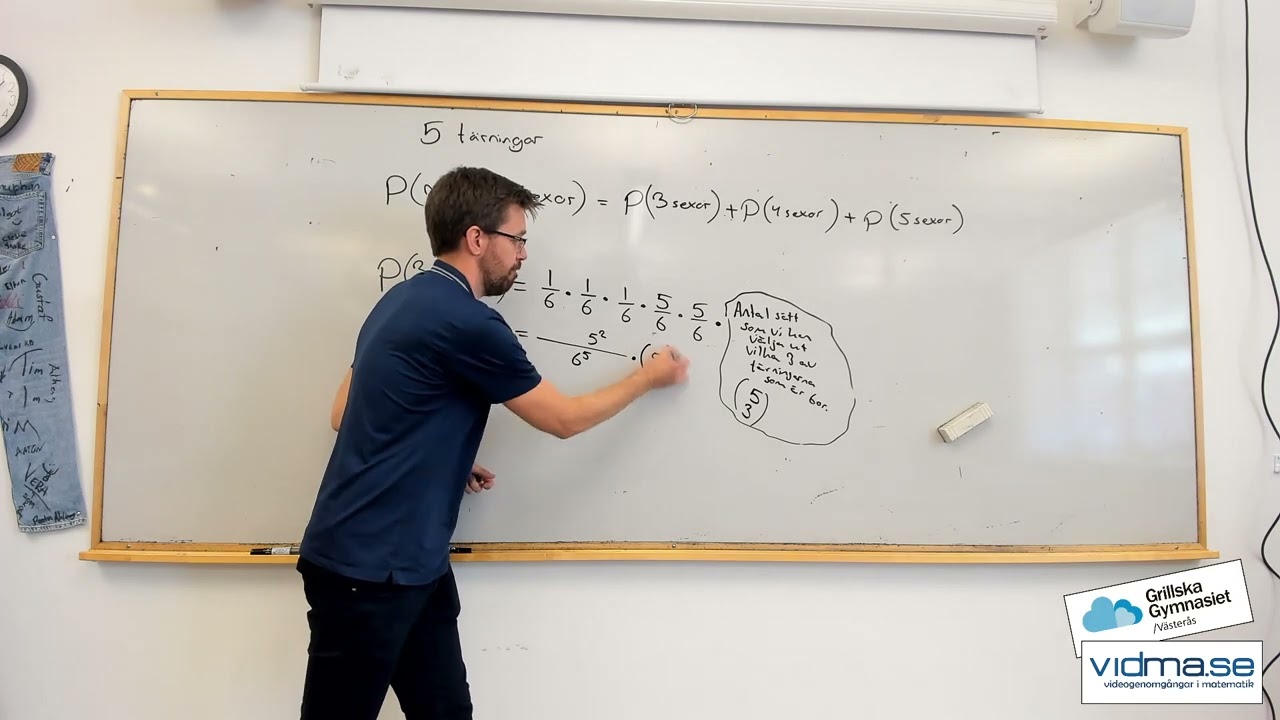 5 tärningar
P( sexor) = P(3 sexor) + P(4 sexor) + P(5 sexor)
P(3 = 1/6 · 1/6 · 1/6 · 5/6 · 5/6 ·
Antal sätt
som vi kan
välja ut
vilka 3 av
tärningarna
som är 6or.
(5 3)
= 5²/6⁵ · (
Tim
VERA
ANTON
Grillska
Gymnasiet
/Västerås
vidma.se
videogenomgångar i matematik